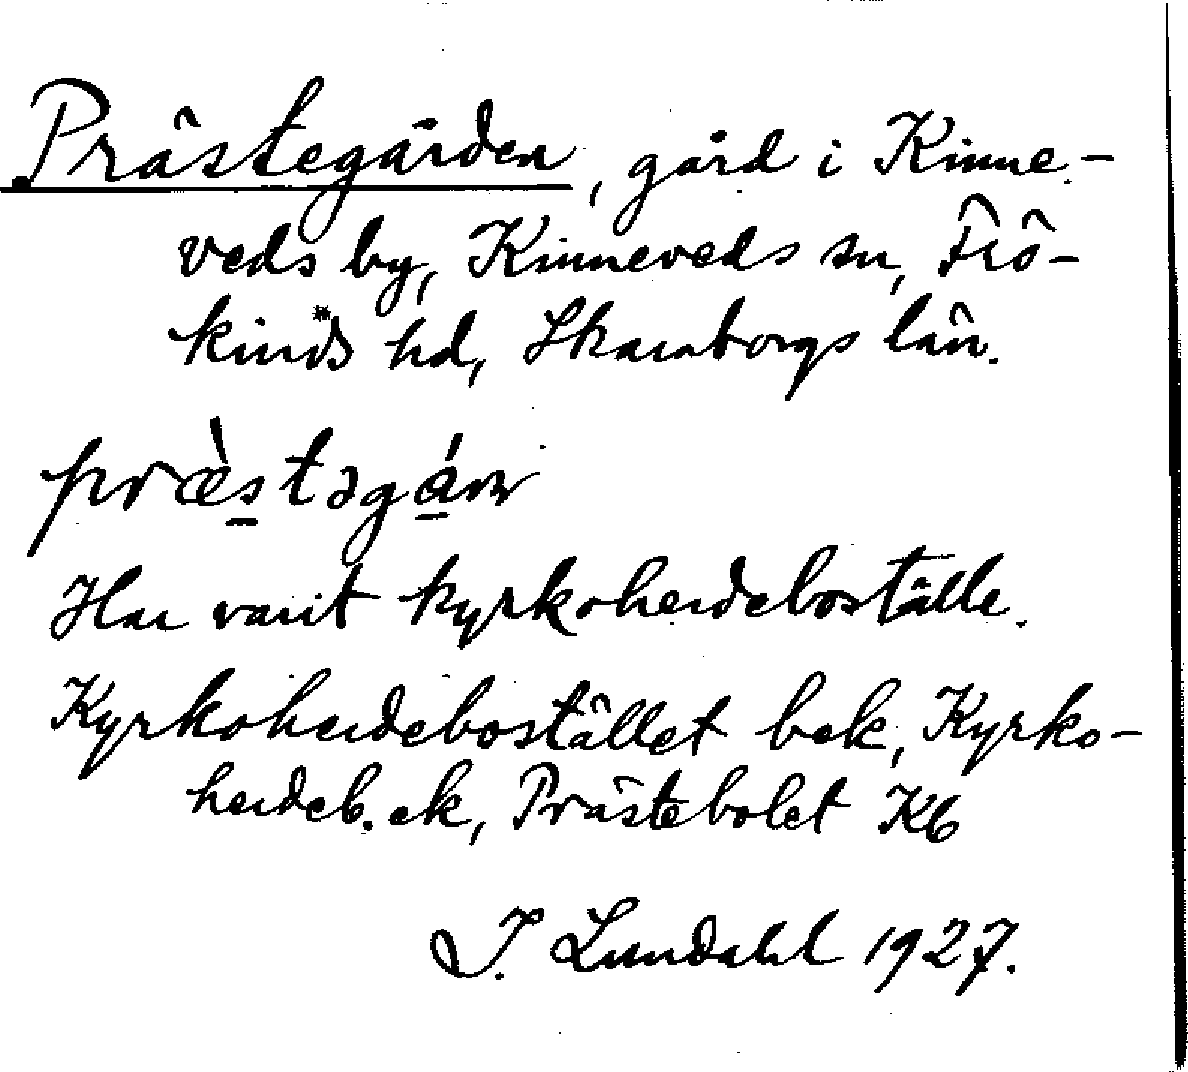 Prästegården, gård i Kinne-
veds by, Kinneveds sn, Frö-
kinds hd, Skaraborgs län.
præ̀stəgár
Har varit kyrkoherdeboställe.
Kyrkoherdebostället bek, Kyrko-
herdeb. ek, Prästebolet Kb
I. Lundahl 1927.